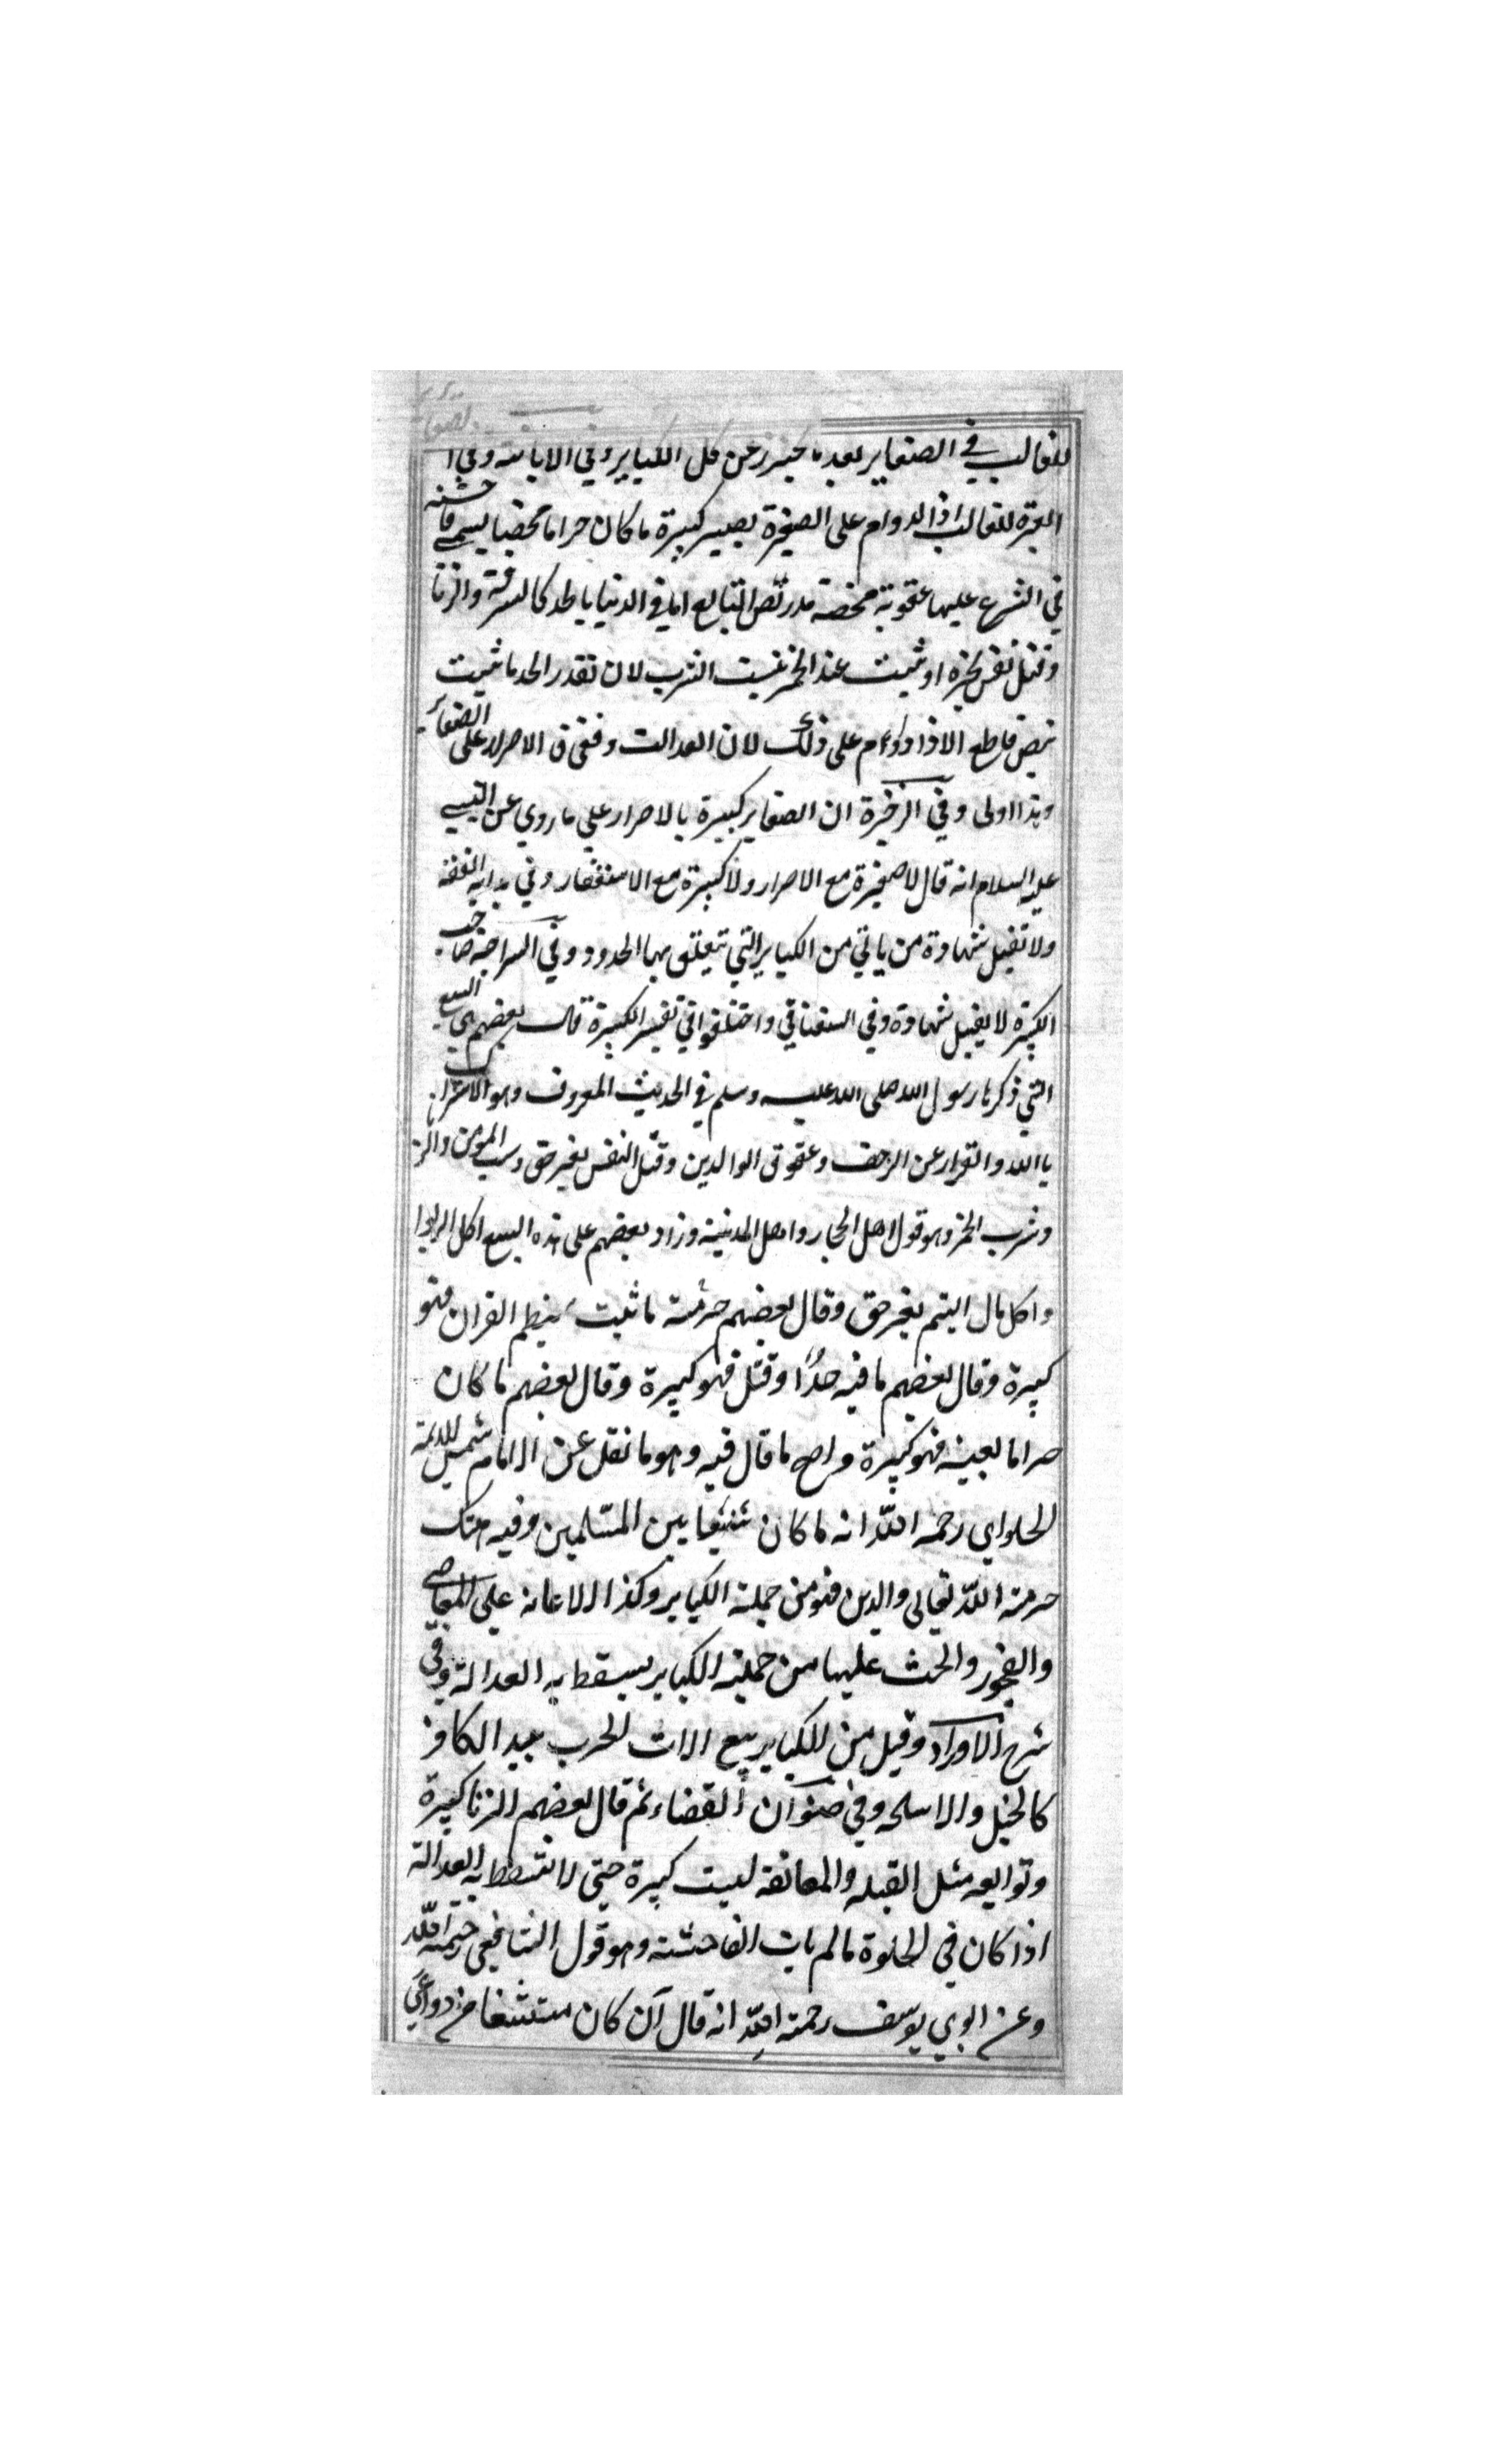 للغالب في الصغاير بعد ما يحترز عن كل الكباير وفي الابانة وفي ا
العبرة للغالب اذ الدوام على الصغيرة يصير كبيرة ما كان حراما محضا يسمى فاحشة
في الشرع عليها عقوبة محضة بنص اما في الدنيا بالحد كالسرقة والزنا
وقتل نفس او شربت الخمر لان تقدر الحد ما ثبت
بنص قاطع الا اذا دوام على ذلك لان العدالت الاصرار على الصغاير
وهذا اولى وفي الذخيرة ان الصغاير كبيرة بالاصرار على ما روي عن النبي
عليه السلام انه قال لا صغيرة مع الاصرار ولا كبيرة مع الاستغفار وفي بداية الفقه
ولا تقبل شهادة من ياتي من الكباير التي تتعلق بها الحدود وفي السراجية صاحب
الكبيرة لا يقبل شهادة وفي السغناقي واختلفوا في تفسير الكبيرة قال بعضهم هي السبع
التي ذكرها رسول الله صلى الله عليه وسلم في الحديث المعروف وهو الاشراك
بالله والفرار عن الزحف وعقوق الوالدين وقتل النفس بغير حق وسب المومن والز
وشرب الخمر وهو قول اهل الحجاز واهل المدينة وزاد بعضهم على هذه السبع اكل الربوا
واكل مال اليتيم بغير حق وقال بعضهم حرمته ما ثبت بنظم القران فهو
كبيرة وقال بعضهم ما فيه حدًا وقتل فهو كبيرة وقال بعضهم ما كان
حراما بعينه فهو كبيرة واصح ما قال فيه وهو ما نقل عن الامام شمس الائمة
الحلواي رحمه الله انه ما كان شنيعا بين المسلمين وفيه هتك
حرمة الله تعالى والدين فهو من جملة الكباير وكذا الاعانة على المعاصي
والفجور والحث عليها من جملة الكباير يسقط به العدالة وفي
شرح الاوراد وقيل من الكباير بيع الات الحرب بيد الكافر
كالخيل والاسلحه وفي صنوان القضاء ثم قال بعضهم الزنا كبيرة
وتوابعه مثل القبله والمعانقه ليست كبيرة حتى لا تسقط به العدالة
اذا كان في الخلوة ما لم يات الفاحشة وهو قول الشافعي رحمه الله
وعن ابوي يوسف رحمة الله انه قال ان كان دواعي